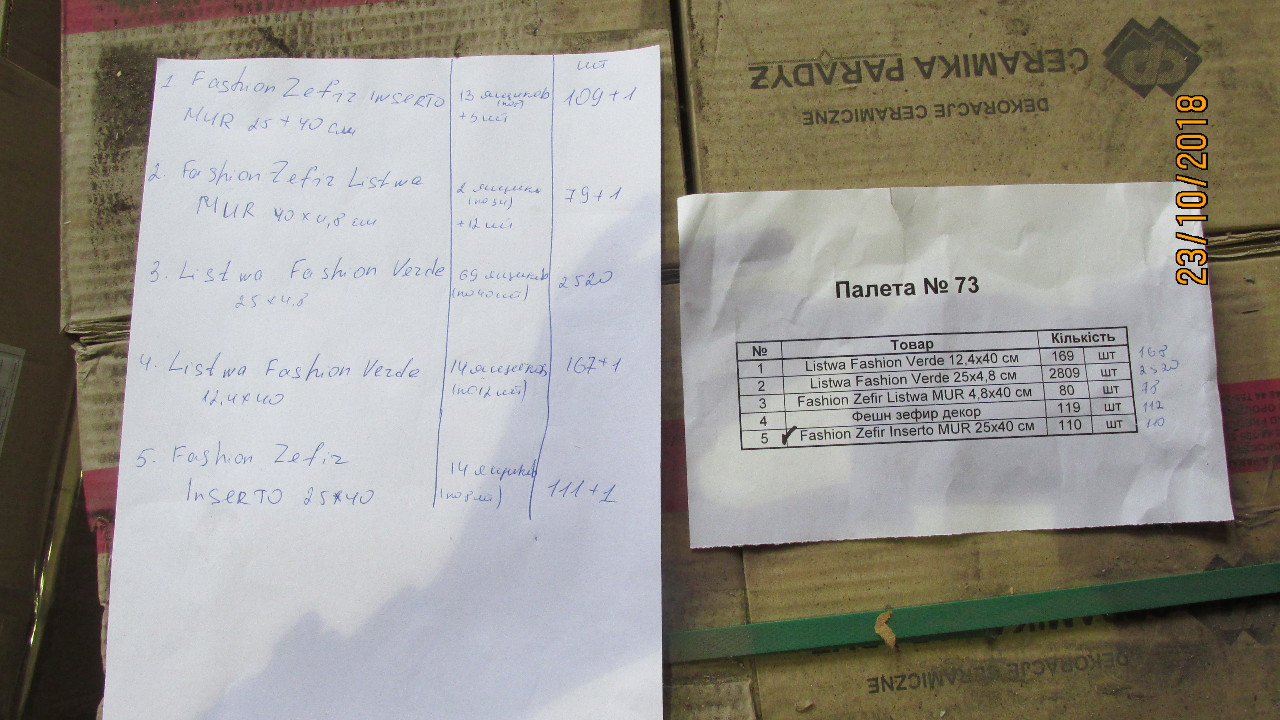 шт
1 Fashion Zefiz INSERTO 13 ящиков 109+1
MUR 25 + 40 см +5шт
2. Fashion Zefiz Listwa 2 ящика 79+1
MUR 40 x 4,8 см +12шт
3. Listwa Fashion Verde 69 ящиков 2520
25 x 4,8 (по 40шт)
4. Listwa Fashion Verde 14 ящиков 167+1
12,4 x 40 (по 12шт)
5. Fashion Zefiz 14 ящиков
INSERTO 25x40 (по 8шт) 111+1
CERAMIKA PARADYŻ
DEKORACJE CERAMICZNE
23/10/2018
Палета № 73
№ Товар Кількість
1 Listwa Fashion Verde 12,4x40 см 169 шт 168
2 Listwa Fashion Verde 25x4,8 см 2809 шт 2520
3 Fashion Zefir Listwa MUR 4,8x40 см 80 шт 78
4 Фешн зефир декор 119 шт 112
5 Fashion Zefir Inserto MUR 25x40 см 110 шт 110
DEKORACJE CERAMICZNE